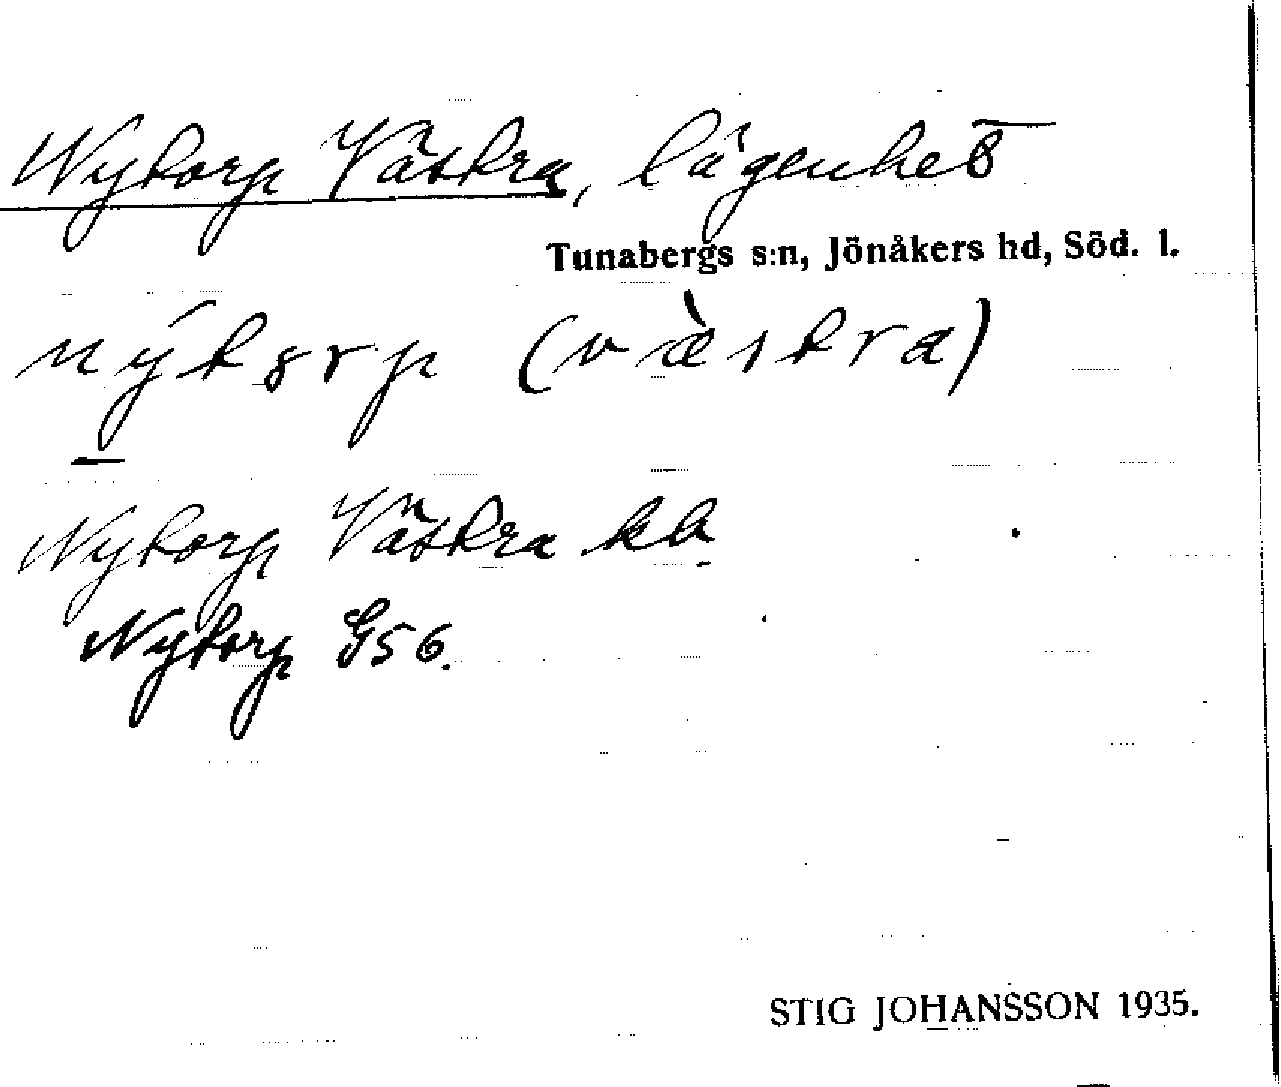 Nytorp Västra, lägenhet
Tunabergs s:n, Jönåkers hd, Söd. l.
nýtorp (væ̀stra)
Nytorp Västra kb.
Nytorp G56.
STIG JOHANSSON 1935.